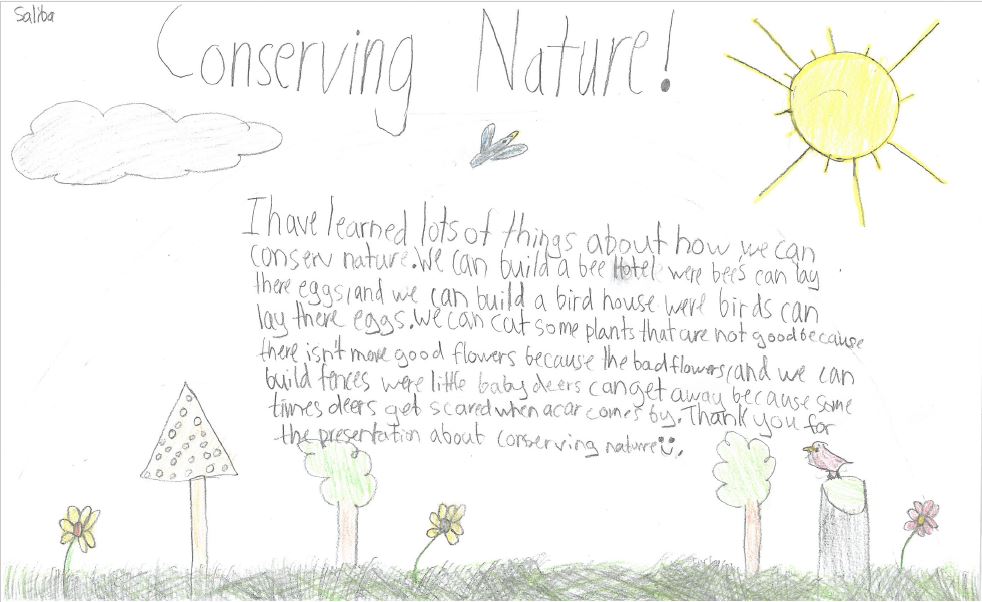 Saliba
Conserving Nature!
I have learned lots of things about how we can
conserv nature. We can build a bee Hotel were bees can lay
there eggs, and we can build a bird house were birds can
lay there eggs. We can cut some plants that are not good because
there isn't more good flowers because the bad flowers, and we can
build fences were little baby deers can get away because some
times deers get scared when a car comes by. Thank you for
the presentation about conserving nature☺.